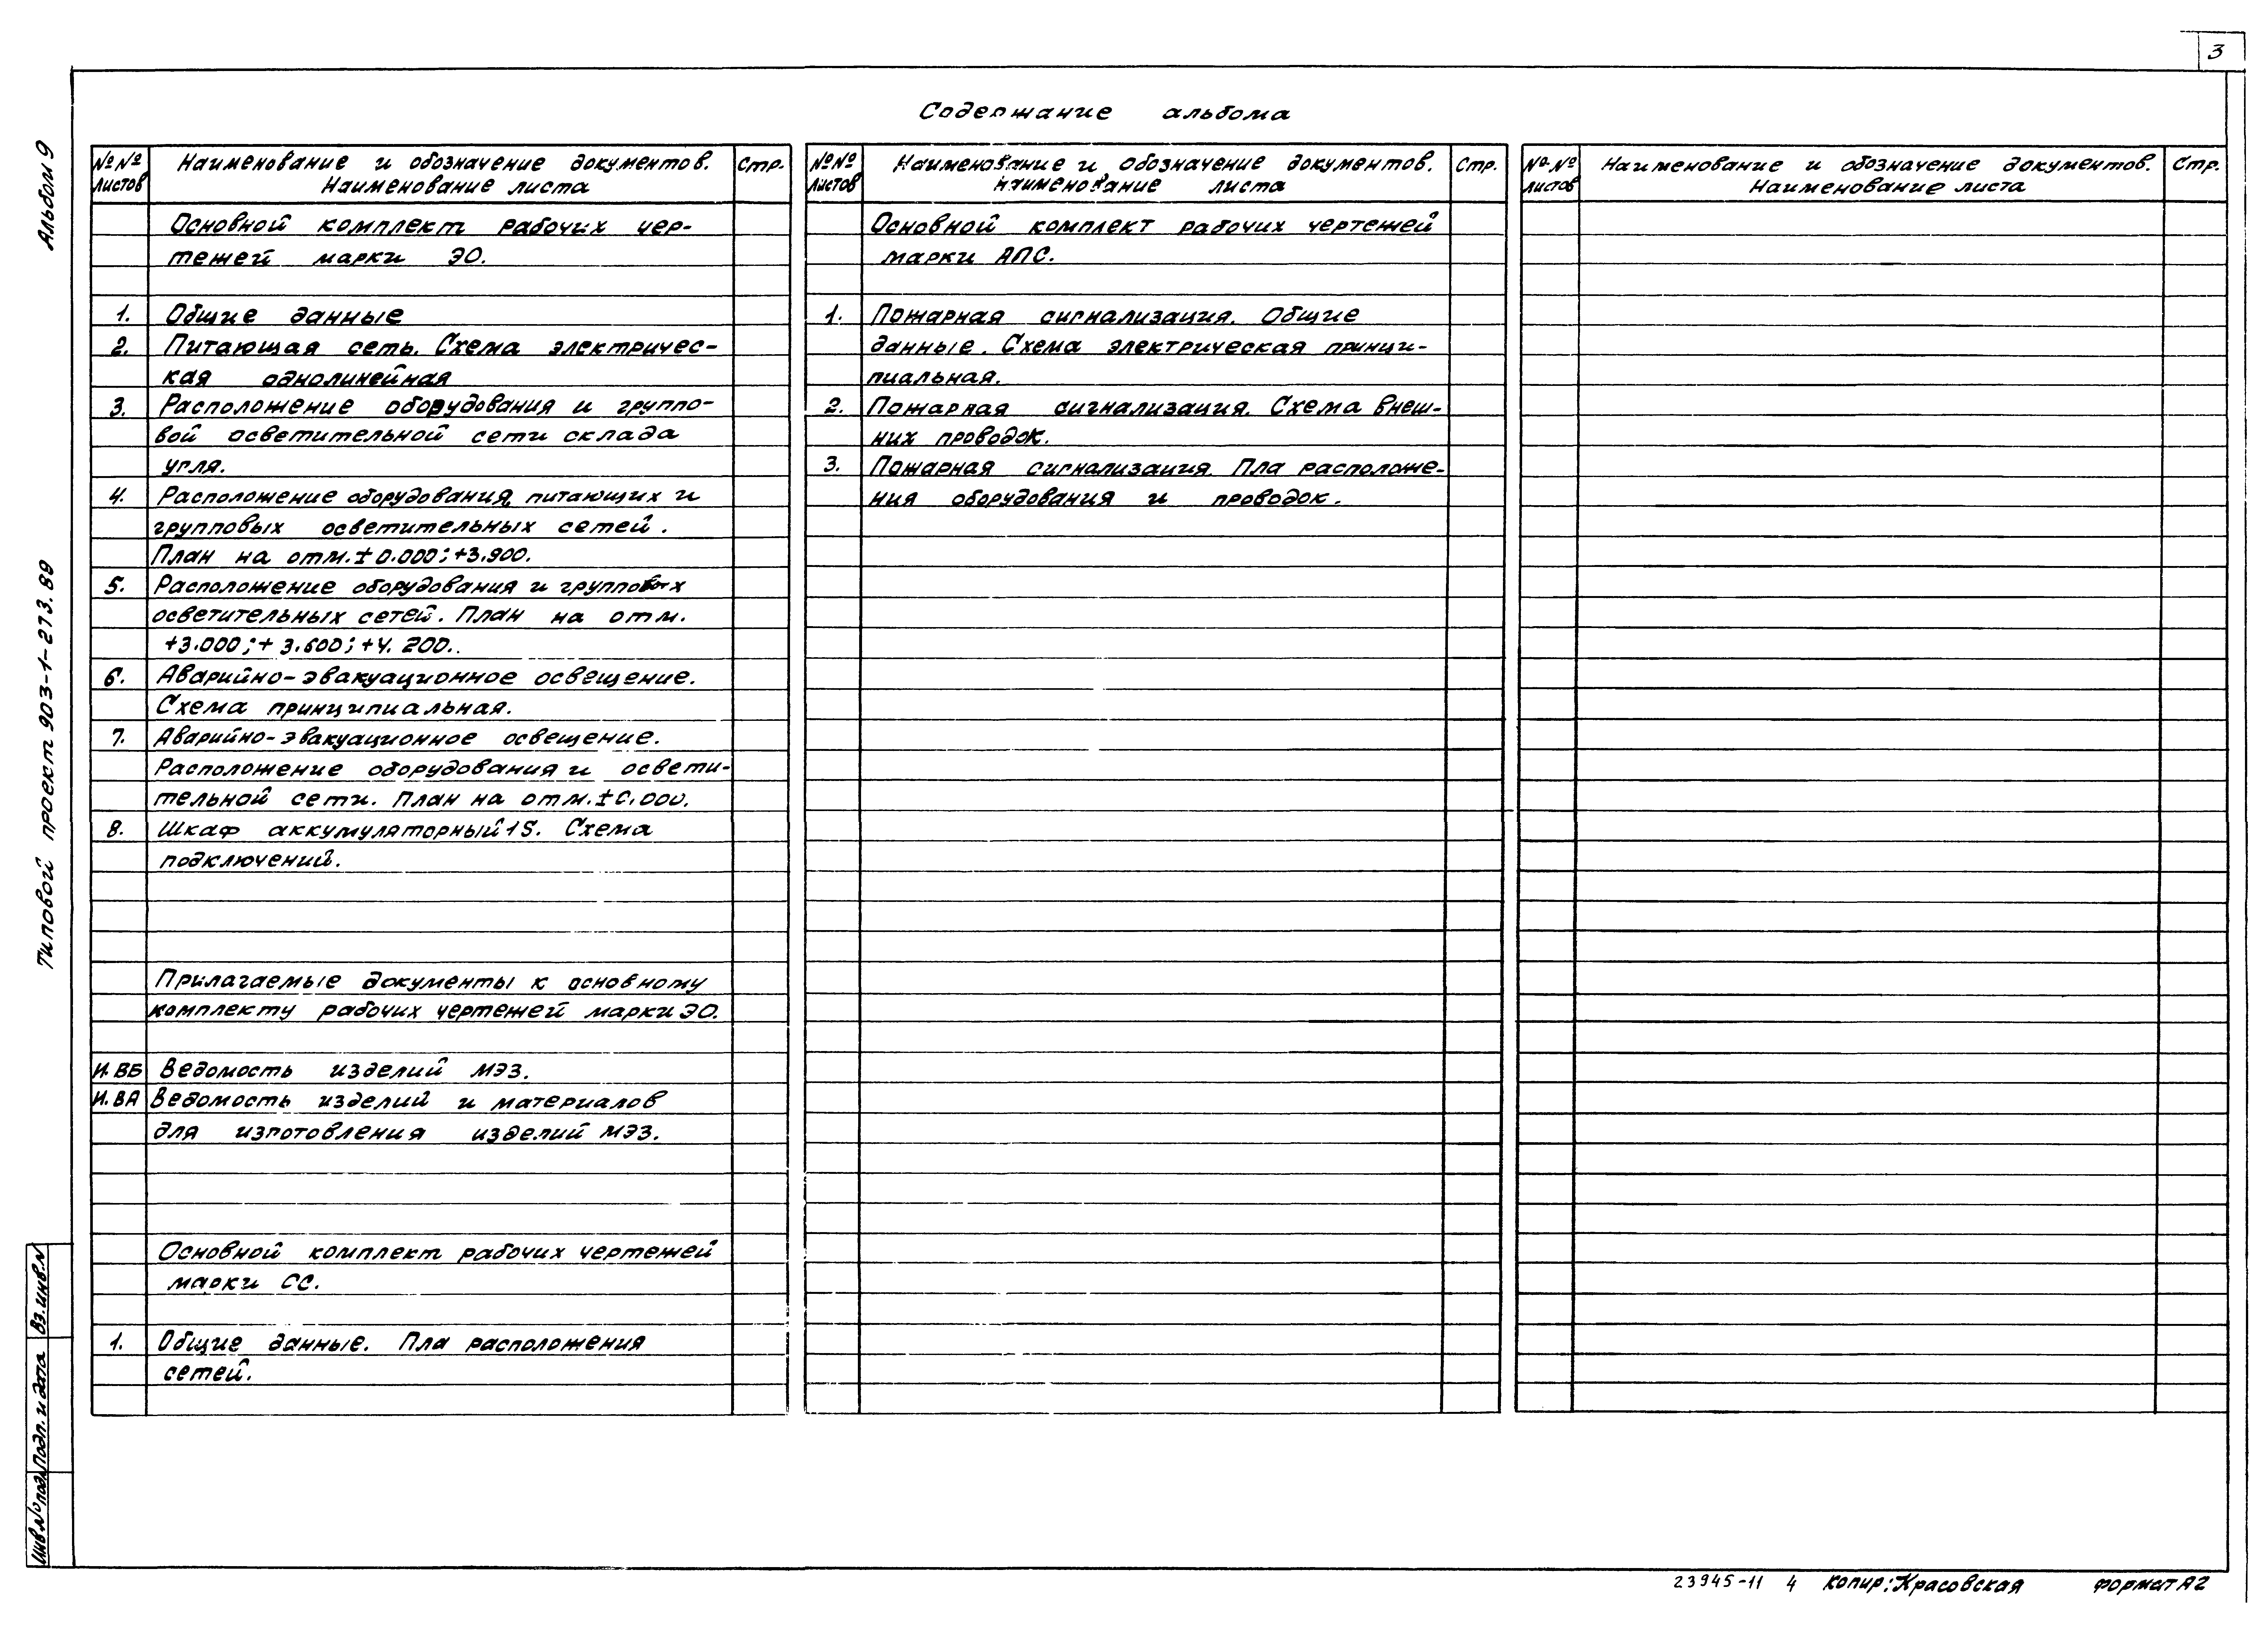 3
Содержание альбома
Альбом 9
Типовой проект 903-1-273.89
№№ листов
Наименование и обозначение документов.
Наименование листа
Стр.
Основной комплект рабочих чер-
тежей марки ЭО.
1. Общие данные
2. Питающая сеть. Схема электричес-
кая однолинейная
3. Расположение оборудования и группо-
вой осветительной сети склада
угля.
4. Расположение оборудования, питающих и
групповых осветительных сетей.
План на отм. ±0.000; +3.900.
5. Расположение оборудования и групповых
осветительных сетей. План на отм.
+3.000; +3.600; +4.200.
6. Аварийно-эвакуационное освещение.
Схема принципиальная.
7. Аварийно-эвакуационное освещение.
Расположение оборудования и освети-
тельной сети. План на отм. ±0.000.
8. Шкаф аккумуляторный 1S. Схема
подключений.
Прилагаемые документы к основному
комплекту рабочих чертежей марки ЭО.
И.ВБ Ведомость изделий МЭЗ.
И.ВА Ведомость изделий и материалов
для изготовления изделий МЭЗ.
Основной комплект рабочих чертежей
марки СС.
1. Общие данные. Пла расположения
сетей.
№№ листов
Наименование и обозначение документов.
Наименование листа
Стр.
Основной комплект рабочих чертежей
марки АПС.
1. Пожарная сигнализация. Общие
данные. Схема электрическая принци-
пиальная.
2. Пожарная сигнализация. Схема внеш-
них проводок.
3. Пожарная сигнализация. Пла расположе-
ния оборудования и проводок.
№№ листов
Наименование и обозначение документов.
Наименование листа
Стр.
Вз.инв.N
Подп. и дата
Инв.№подл.
23945-11 4 Копир: Красовская Формат А2